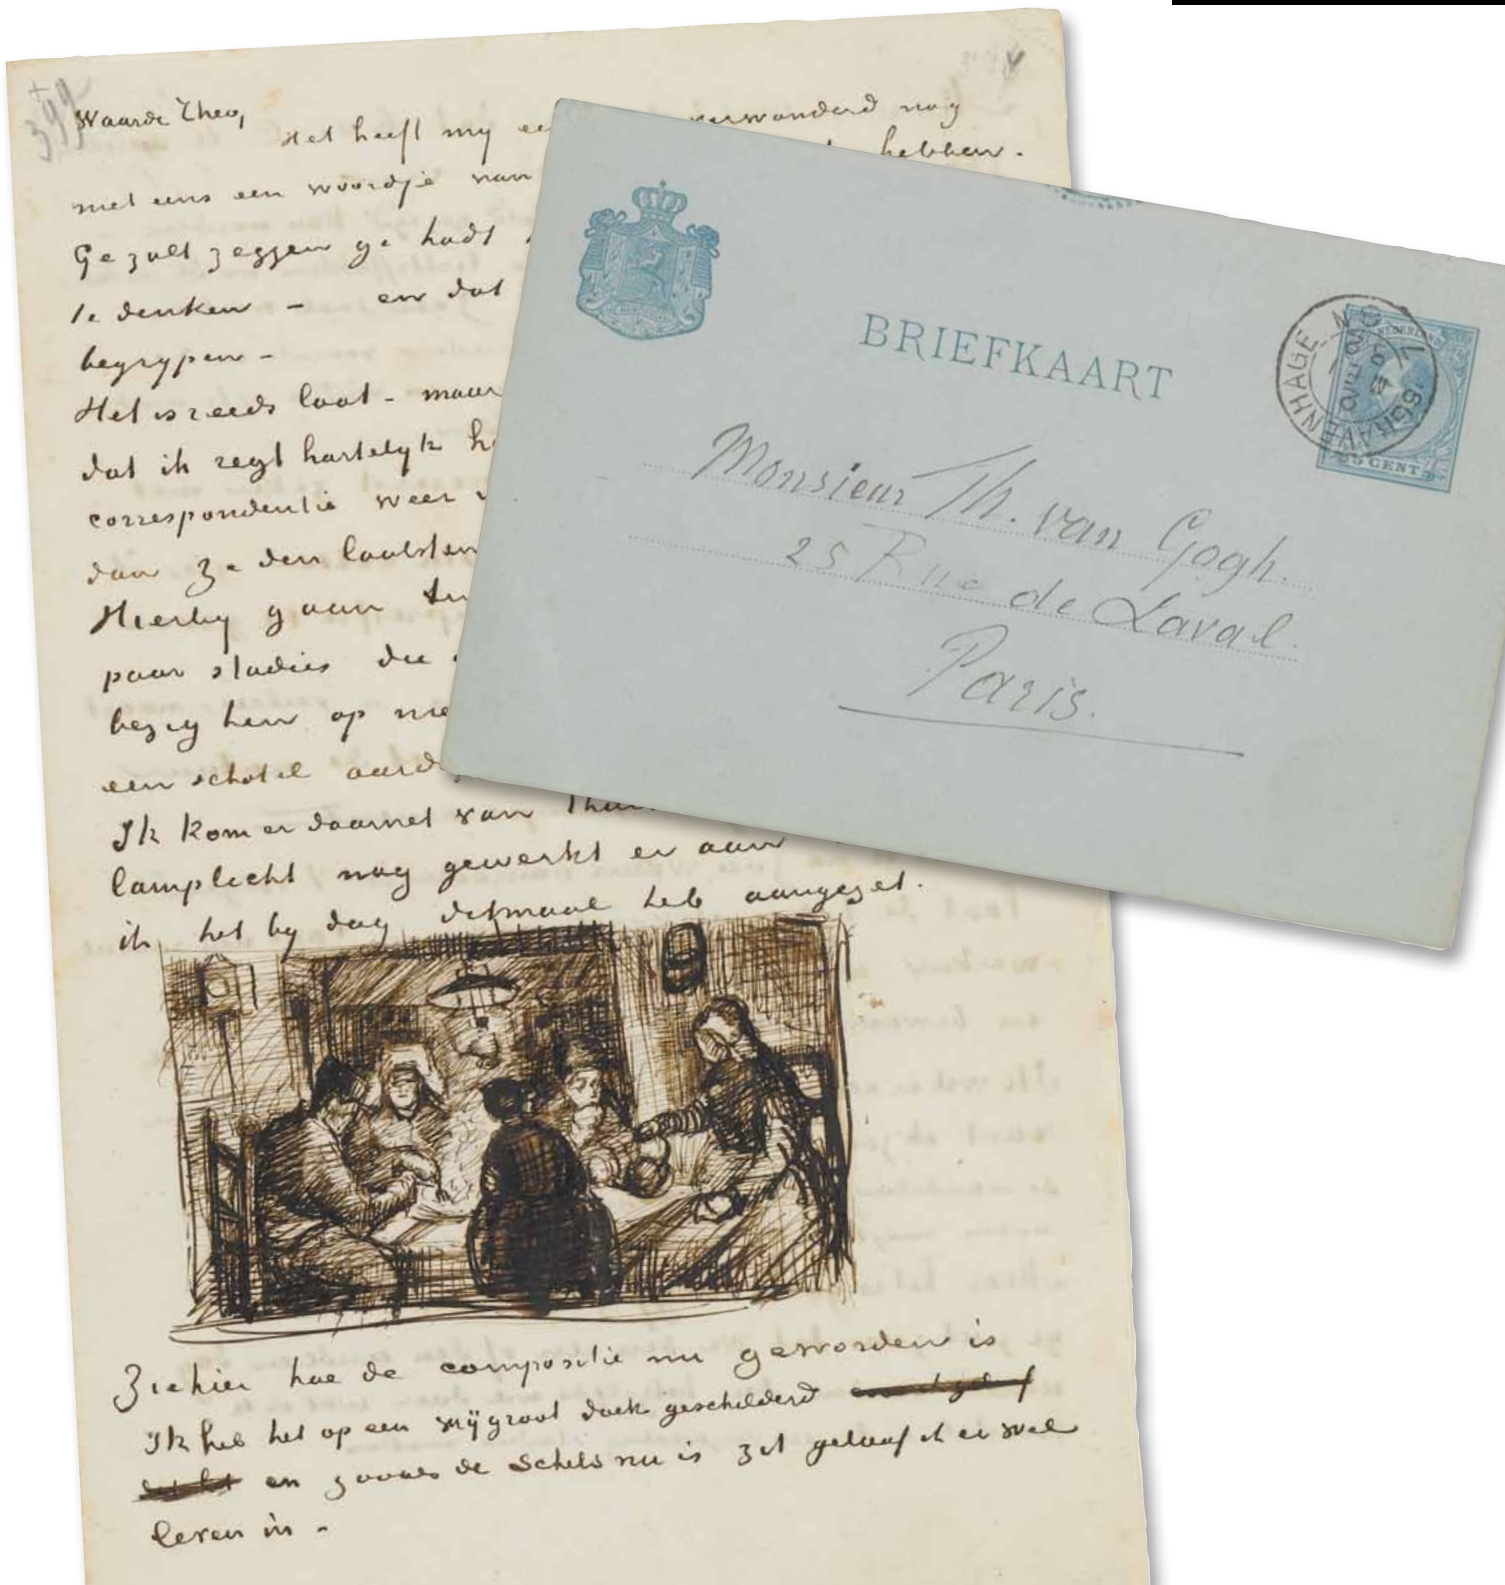 399
Waarde Theo,
Het heeft my verwonderd nog
met eens een woordje van hebben.
Ge zult zeggen ge hadt
te denken – en dat
begrypen –
Het is reeds laat – maar
dat ik regt hartelyk
correspondentie weer
dan ze den laatsten
Hierby gaan
paar studies die
bezig ben op
een schotel
Ik kom er daarnet van
lamplicht nog gewerkt er aan
ik het by dag ditmaal heb aangezet.
Ziehier hoe de compositie nu geworden is
Ik heb het op een vrÿ groot doek geschilderd
en zooals de schets nu is zit geloof ik er wel
leven in –
BRIEFKAART
'SGRAVENHAGE
NEDERLAND
CENT
Monsieur Th. van Gogh.
25 Rue de Laval.
Paris.